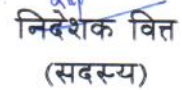 निदेशक वित्त
(सदस्य)